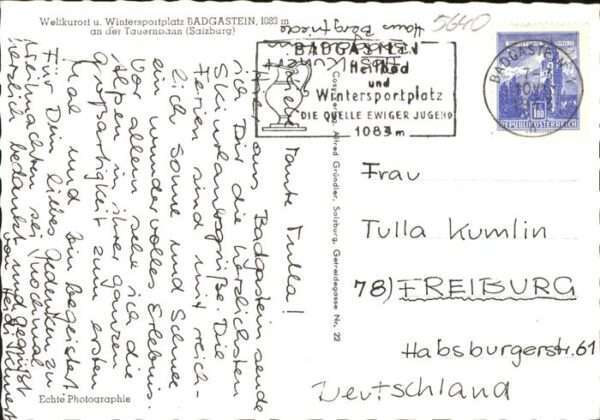 Weltkurort u. Wintersportplatz BADGASTEIN, 1083 m
an der Tauernbahn (Salzburg)
5640
Haus Bergfriede
BADGASTEIN
Heilbad
und
Wintersportplatz
DIE QUELLE EWIGER JUGEND
1083 m
BADGASTEIN
REPUBLIK ÖSTERREICH
Alfred Gründler, Salzburg, Getreidegasse Nr. 22
Frau
Tulla Kumlin
78) FREIBURG
Habsburgerstr. 61
Deutschland
Tante Tulla!
aus Badgastein sende
ich Dir die herzlichsten
Skiurlaubsgrüße. Die
Ferien sind mit reich-
lich Sonne und Schnee
ein wundervolles Erlebnis.
Vor allem sehe ich die
Alpen in ihrer ganzen
Großartigkeit zum ersten
Mal und bin begeistert
Für Dein liebes Gedenken zu
Weihnachten sei nochmal
herzlich bedankt und gegrüßt
Echte Photographie